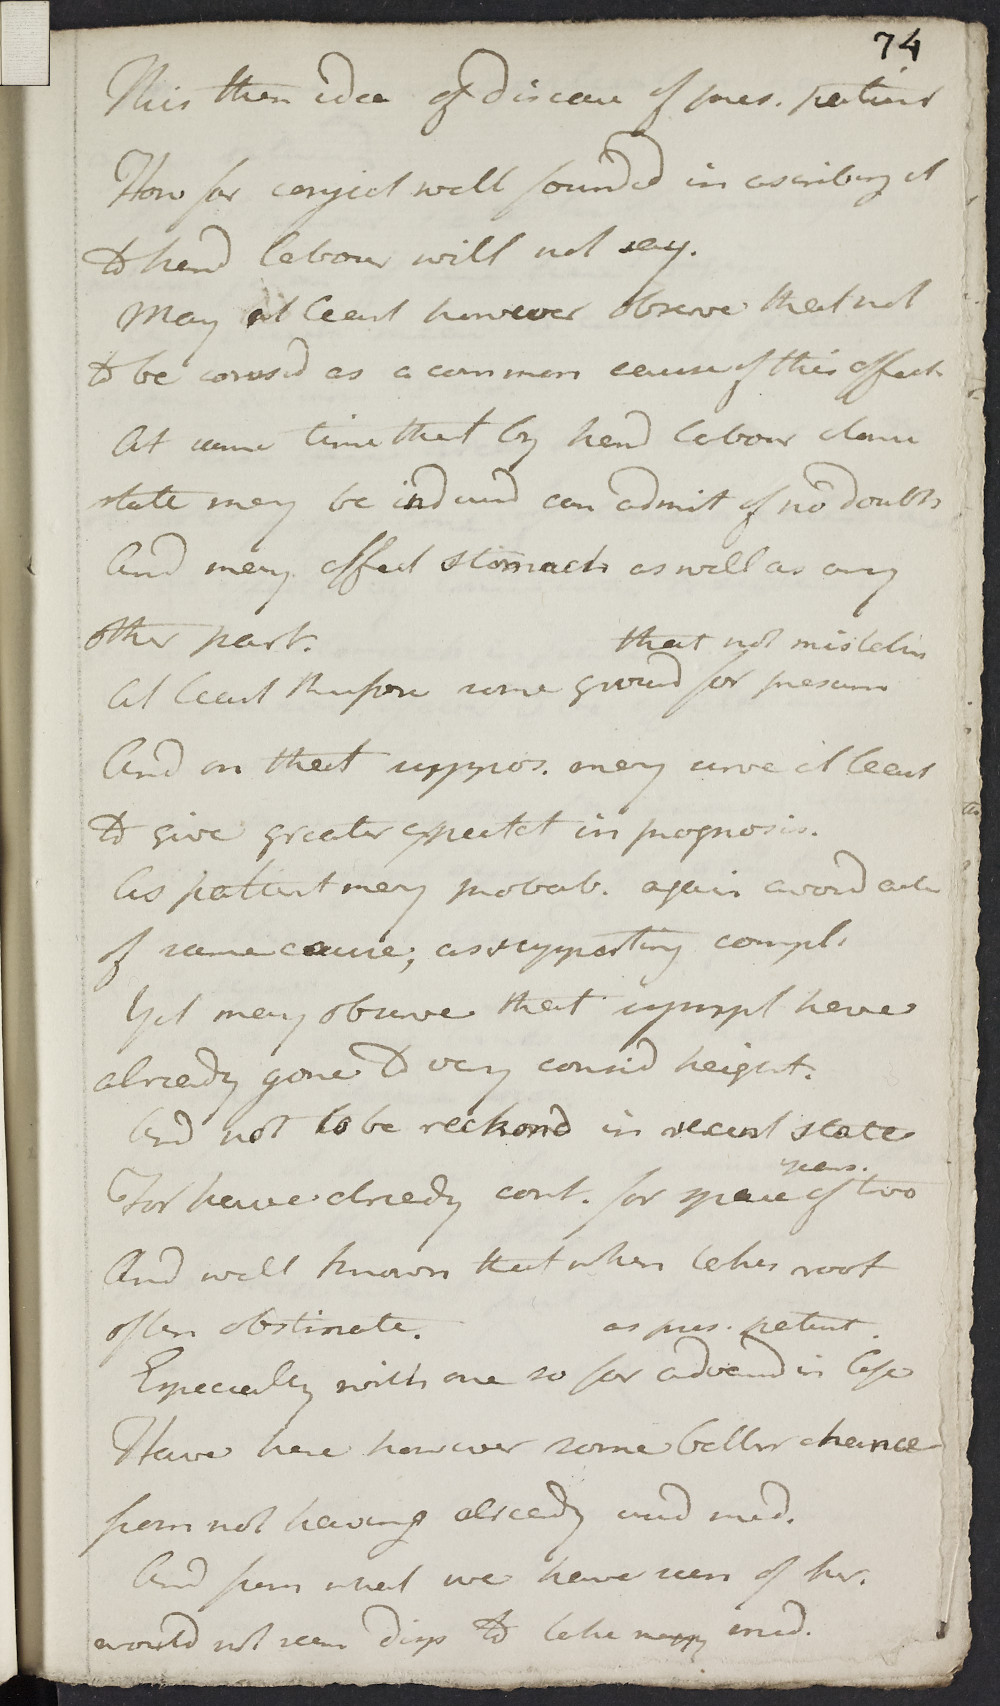 74
This then idea of disease of pres. patient
How far conject well founded in ascribing it
to hard labour will not say.
May at least however observe that not
to be consid as a common cause of this effect
At same time that by hard labour
state may be induced can admit of no doubt
And may affect stomach as well as any
other part.
that not mistaken
At least therefore some ground for presum
And on that suppos. may serve at least
to give greater expectat in prognosis.
As patient may probab. again avoid
of same cause; as supporting compl.
Yet may observe that sympt have
already gone to very consid height.
And not to be reckond in recent state
years.
For have already cont. for space of two
And well known that when takes root
often obstinate.
as pres. patient.
Especially with one so far advancd in life
Have here however some better chance
from not having already used med.
And from what we have seen of her.
would not seem disp to take many med.